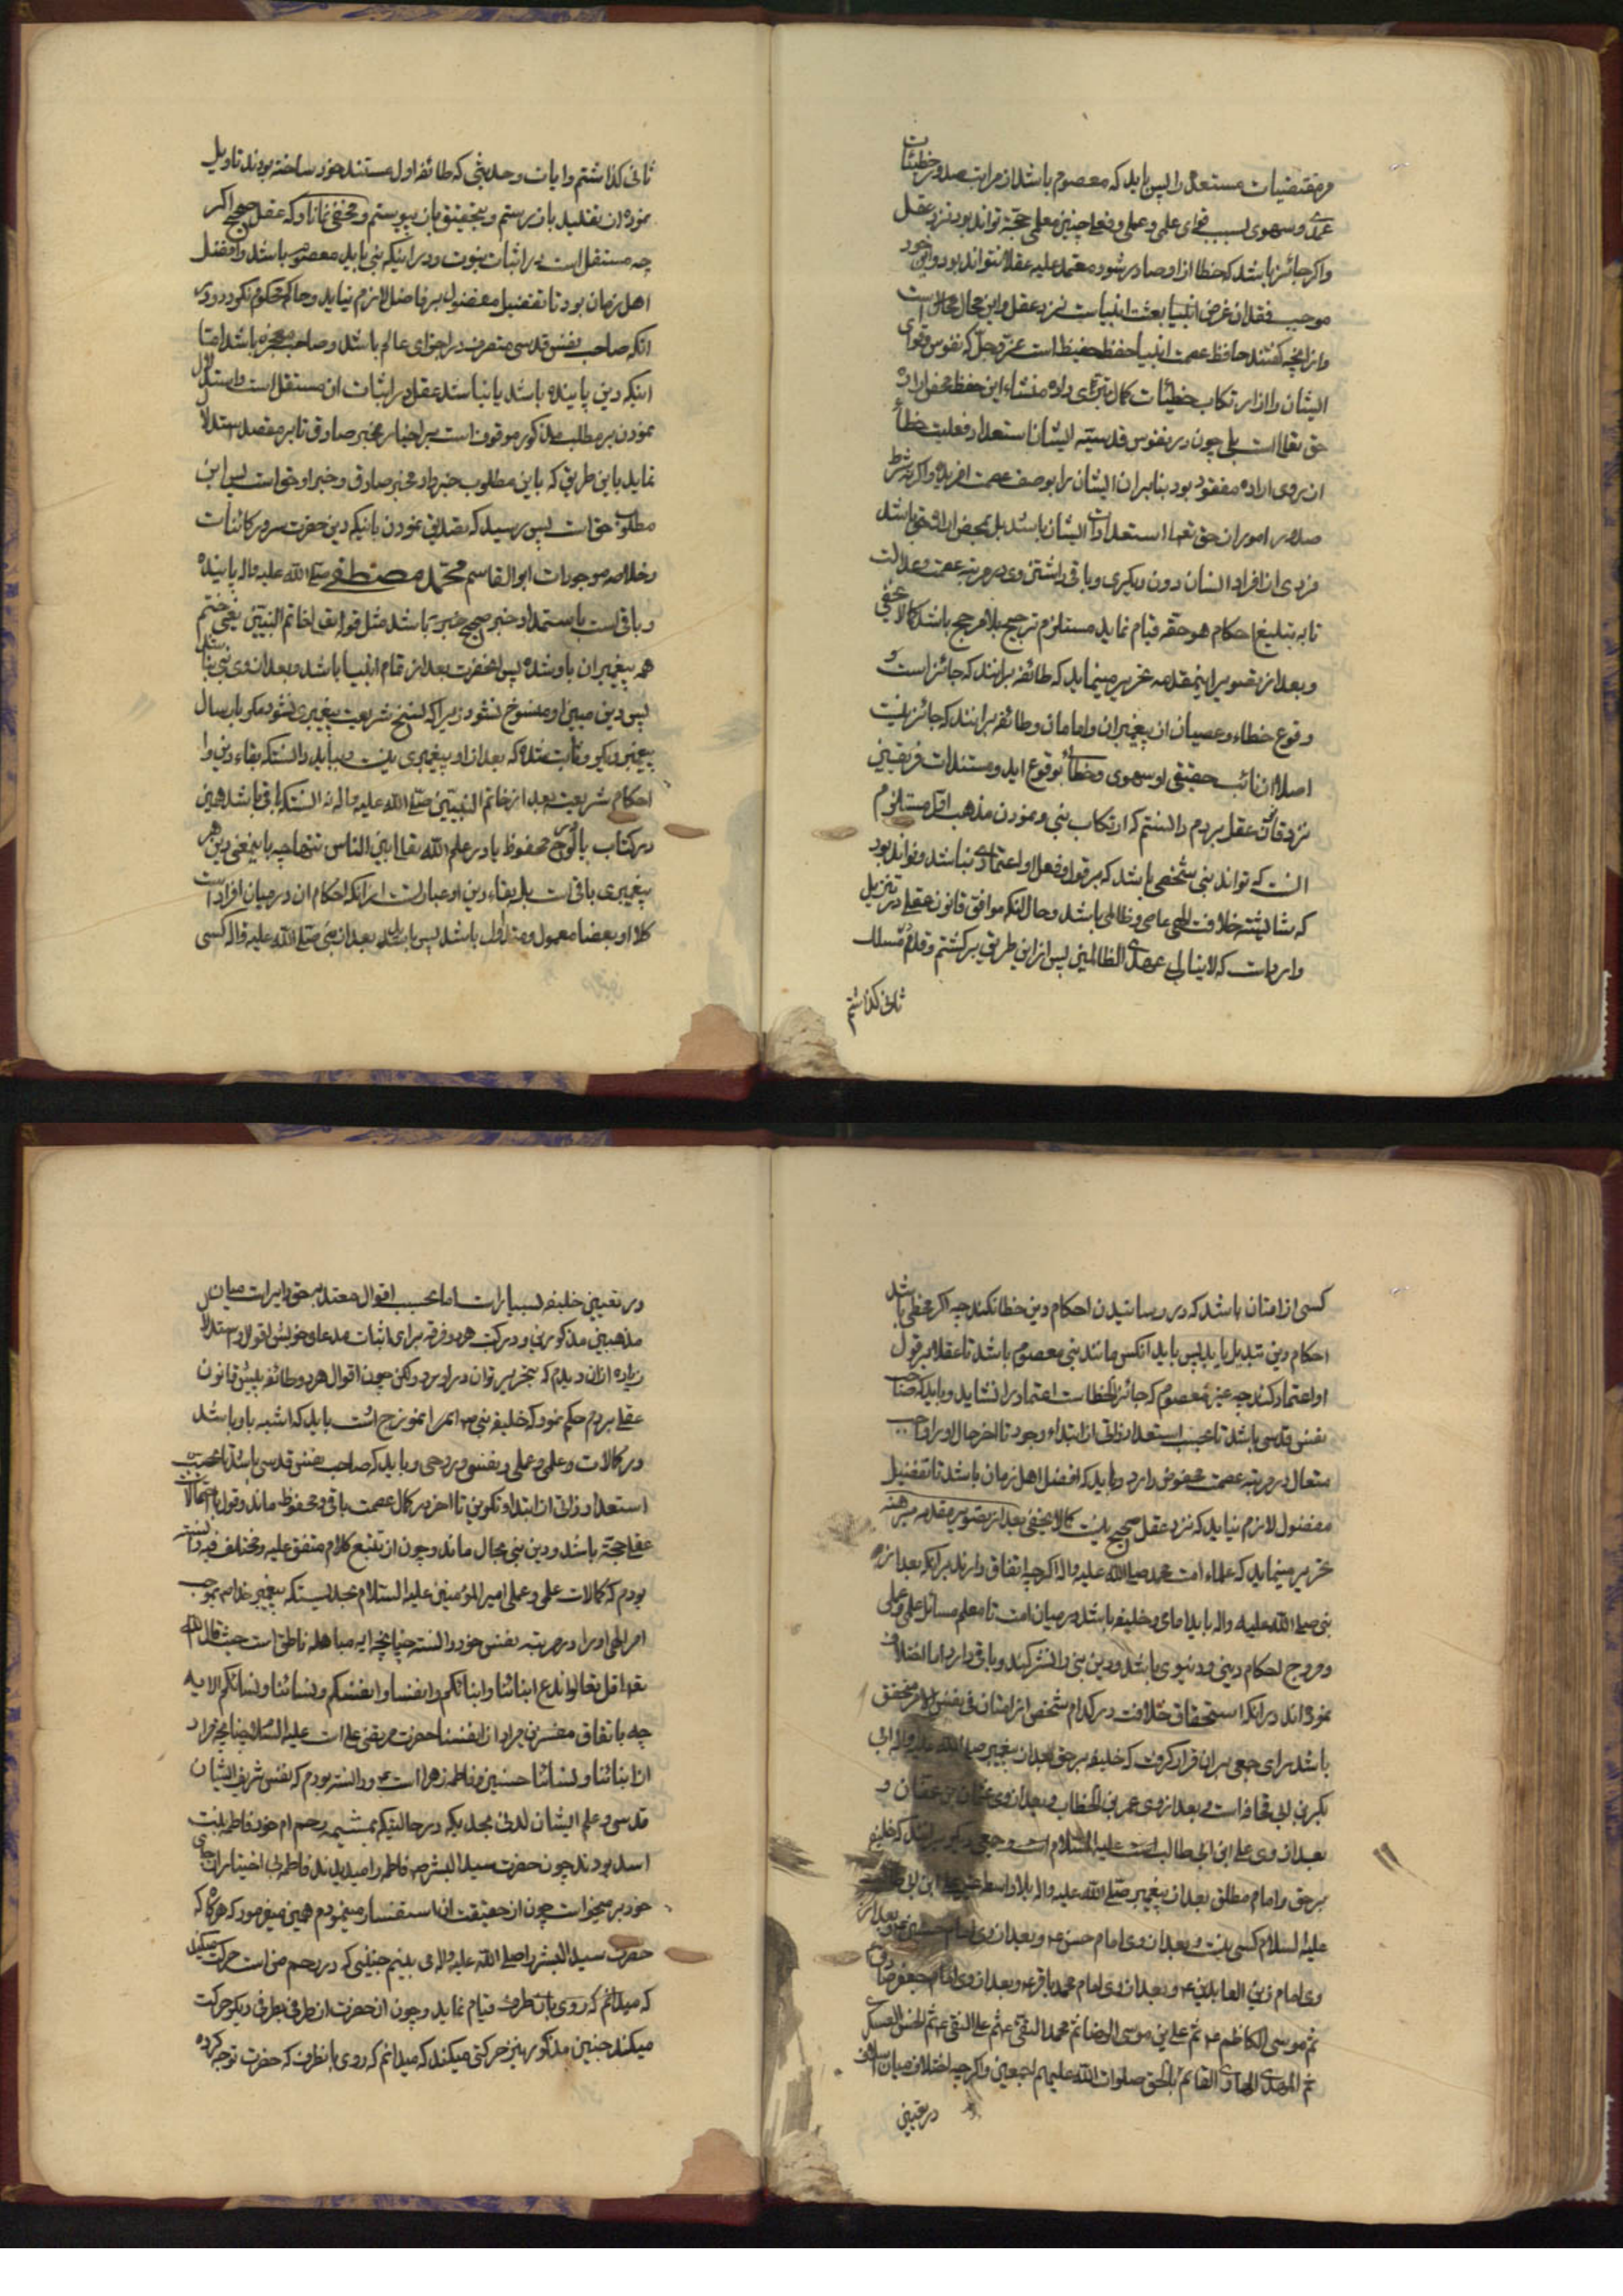 مرمقتضیات مستعده را پس باید که معصوم باشد از مراتب صدور خطیئات
عمدی و سهوی بسبب قوای علمی و عملی و فعل چنین معلمی حجة تواند بود نزد عقل
و اگر جائز باشد که خطا از او صادر شود معتمد علیه عقلا نتواند بود و این خود
موجب فقدان غرض انبیا بعثت انبیاست نزد عقل و این محال محال است
و از انچه گفتند حافظ عصمت انبیا حفظ حفیظ است عز و جل که نفوس و قوای
ایشان را از ارتکاب خطیئات کمال تبری داده منشاء این حفظ محض اراده
حق تعالی است بلی چون در نفوس قدسیّه ایشان استعداد فعلیت خطأ
از روی اراده مفقود بود بنابران ایشان را بوصف عصمت افریده و اگر نه شرط
صدور امور از حق تعه استعدادات ایشان باشد بل بمحض اراده حق باشد
فردی از افراد انسان دون دیگری و باقی داشتن وی در مرتبه عصمت و عدالت
تا به تبلیغ احکام هو حقه قیام نماید مستلزم ترجیح بلا مرجح باشد کما لا یخفی
و بعد از تصویر اینمقدمه تحریر مینماید که طائفه برانند که جائز است
وقوع خطاء و عصیان از پیغمبران و امامان و طائفه برانند که جائز نیست
اصلا از نائب حقیقی او سهوی و خطائی بوقوع اید و مستندات فریقین
نزد قائد عقل بردم دانستم که ارتکاب نبی و نمودن مذهب اول مستلزم
انست که تواند نبی شخصی باشد که بر قول و فعل او اعتمادی نباشد و تواند بود
که شایسته خلافت الهی عاصی و ظالمی باشد و حال انکه موافق قانون عقل در تنزیل
وارد است که لاینال عهدی الظالمین پس از این طریق برگشتم و قدم بمسلک
ثانی گذاشتم
ثانی گذاشتم و ایات و حدیثی که طائفه اول مستند خود ساخته بودند تاویل
نموده از تقلید بازرستم و بتحقیق بان پیوستم و مخفی نماناد که عقل صحیح اگر
چه مستقل است در اثبات نبوت و در اینکه نبی باید معصوم باشد و افضل
اهل زمان بود تا تفضیل مفضول بر فاضل لازم نیاید و حاکم محکوم نگردد و در
انکه صاحب نفس قدسی متصرف در اجزای عالم باشد و صاحب معجزه باشد اما
اینکه دین پاینده باشد یا نباشد عقل در اثبات ان مستقل است و استدلال
نمودن بر مطلب مذکور موقوف است بر اخبار مخبر صادق تا بر مفصل استدلال
نماید باین طریق که باین مطلوب خبر داد مخبر صادق و خبر او حق است پس این
مطلوب حق است پس رسید که تصدیق نمودن باینکه دین حضرت سرور کائنات
و خلاصه موجودات ابو القاسم محمّد مصطفی صلی الله علیه واله پاینده
و باقی است باستمداد خبر صحیح خبری باشد مثل قوله تعالی خاتم النبیین یعنی ختم
همه پیغمبران باو شده پس انحضرت بعد از تمام انبیا باشد و بعد از وی نبی نباشد
پس دین مبین او منسوخ نشود زیرا که نسخ شریعت پیغمبری نشود مگر بارسال
پیغمبر دیگر و ثابت شده که بعد از او پیغمبری نیست و بباید دانست که بقاء دین و
احکام شریعت بعد از خاتم النبیین صلی الله علیه واله نه انستکه باقی باشد همین
در کتاب یا لوح محفوظ یا در علم الله تعالی بین الناس تنها چه باینمعنی دین هر
پیغمبری باقی است بلکه بقاء دین او عبارتست از انکه احکام ان در میان افراد امت
کلا او بعضا معمول و متداول باشد پس باید که بعد از نبی صلی الله علیه واله کسی
کسی از امتان باشد که در رسانیدن احکام دین خطا نکند چه اگر مخطی باشد
احکام دین تبدیل یابد پس باید انکس مانند نبی معصوم باشد تا عقلا بر قول
او اعتماد کنند چه غیر معصوم که جائز الخطاست اعتماد را نشاید و باید که صاحب
نفس قدسی باشد تا بحسب استعداد ذاتی از ابتداء وجود تا اخر حال او را واجب
متعال در مرتبه عصمت محفوظ دارد و باید که افضل اهل زمان باشد تا تفضیل
مفضول لازم نیاید که نزد عقل صحیح نیست کما لا یخفی بعد از تصویر مقدمه مبرهنه
تحریر مینماید که علماء امت محمد صلی الله علیه واله اگر چه اتفاق دارند بر انکه بعد از
نبی صلی الله علیه واله باید امامی و خلیفه باشد در میان امت تا معلم مسائل علمی و عملی
و مروج احکام دینی و دنیوی باشد و دین نبی را نشر کند و باقی دارد اما اختلاف
نموده اند در انکه استحقاق خلافت در کدام شخص از امتان فی نفس الامر متحقق
باشد برای جمعی بران قرار گرفت که خلیفه بر حق بعد از پیغمبر صلی الله علیه واله ابی
بکر بن ابی قحافه است و بعد از وی عمر بن الخطاب و بعد از وی عثمان بن عفان و
بعد از وی علی ابن ابی طالب است علیه السلام است و جمعی دیگر برانند که خلیفه
بر حق و امام مطلق بعد از پیغمبر صلی الله علیه واله بلا واسطه علی ابن ابی طالب
علیه السلام کسی نیست و بعد از وی امام حسن ع و بعد از وی امام حسین ع و بعد از
وی امام زین العابدین ع و بعد از وی امام محمد باقر ع و بعد از وی امام جعفر صادق
ثم موسی الکاظم ع ثم علی بن موسی الرضا ثم محمد التقی ع ثم علی النقی ع ثم الحسن العسکری
ثم المهدی الهادی القائم بالحق صلوات الله علیهم اجمعین و اگر چه اختلاف میان
در تعیین
در تعیین خلیفه بسیار است اما بحسب اقوال معتد به حق دایر است میان
مذهبین مذکورین و در کتب هر دو فرقه برای اثبات مدعاء خویش اقوال و استدلال
زیاده از ان دیدم که بتحریر توان در اورد و لکن چون اقوال هر دو طائفه پیش قانون
عقل بردم حکم نمود که خلیفه نبی ص امر انموزج انست باید که اشبه باو باشد
در کمالات و علمی و عملی و نفسی و روحی و باید که صاحب نفس قدسی باشد تا بحسب
استعداد ذاتی از ابتداء تکوین تا اخر در کمال عصمت باقی و محفوظ ماند و قول با احتمالات
عقل حجة باشد و دین نبی بحال ماند و چون از تتبع کلام متفق علیه و مختلف فیه دانسته
بودم که کمالات علمی و عملی امیر المؤمنین علیه السلام بحدیستکه پیغمبر خدا ص بموجب
امر الهی او را در مرتبه نفس خود دانسته چنانچه ایه مباهله ناطق است حیث قال الله
تعه قل تعالوا ندع ابنائنا و ابنائکم و انفسنا و انفسکم و نسائنا و نسائکم الایه
چه باتفاق مفسرین مراد از انفسنا حضرت مرتضی علی است علیه السلام چنانچه مراد
از ابنائنا و نسائنا حسنین و فاطمه زهرا است ع و دانسته بودم که نفس شریف ایشان
قدسی و علم ایشان لدنی بحدیکه در حالتیکه بمشیمه رحم ام خود فاطمه بنت
اسد بودند چون حضرت سید البشر ص فاطمه را میدیدند فاطمه بی اختیار از جای
خود بر میخواست چون از حقیقت ان استفسار مینمودم همین میفرمود که هرگاه که
حضرت سید البشر را صلی الله علیه واله می بینم جنینی که در رحم من است حرکت میکند
که میدانم که روی بان طرف قیام نماید و چون انحضرت از طرفی بطرفی دیگر حرکت
میکند جنین مذکور نیز حرکتی میکند که میدانم که روی بانطرف که حضرت توجه کرده